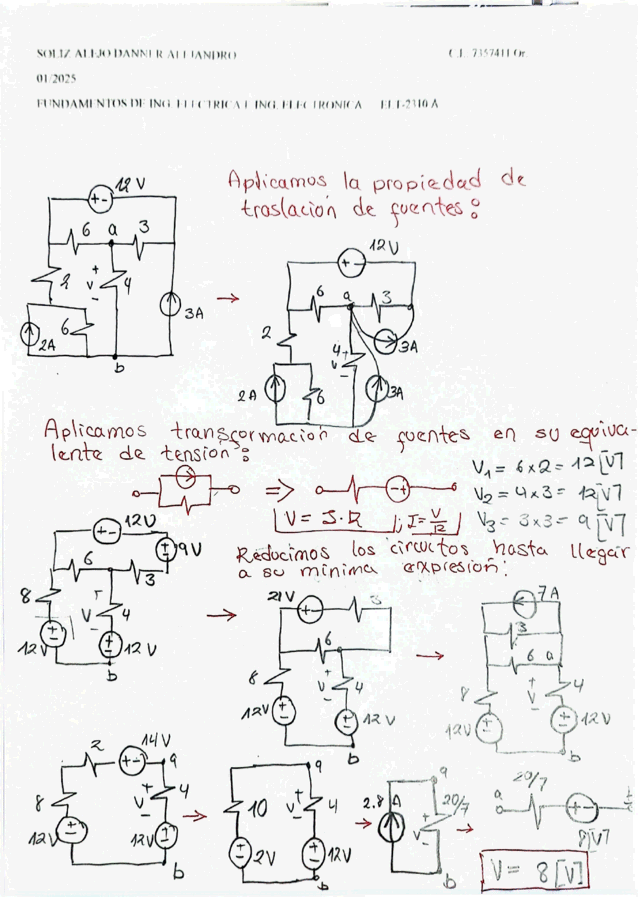 SOLIZ ALEJO DANNER ALEJANDRO C.I. 7357411 Or.
01/2025
FUNDAMENTOS DE ING. ELECTRICA E ING. ELECTRONICA ELT-2310 A
12 V
Aplicamos la propiedad de
traslación de fuentes:
6 a 3
2 + v - 4
3A
2A 6
b
12V
6 a 3
2
3A
4 + v -
2A 6 3A
Aplicamos transformación de fuentes en su equiva-
lente de tensión:
=>
V = I·R ; I = V/R
V1 = 6x2 = 12[V]
V2 = 4x3 = 12[V]
V3 = 3x3 = 9[V]
Reducimos los circuitos hasta llegar
a su mínima expresión:
12V
9V
6 3
8 + V - 4
12V 12V
b
21V 3
6
8 + V - 4
12V 12V
b
7A
3
6 a
8 + V - 4
12V 12V
b
2 14V a
8 + V - 4
12V 12V
b
a
10 + V - 4
2V 12V
b
a
2.8 A + V - 20/7
b
a 20/7
8[V]
V = 8[V]